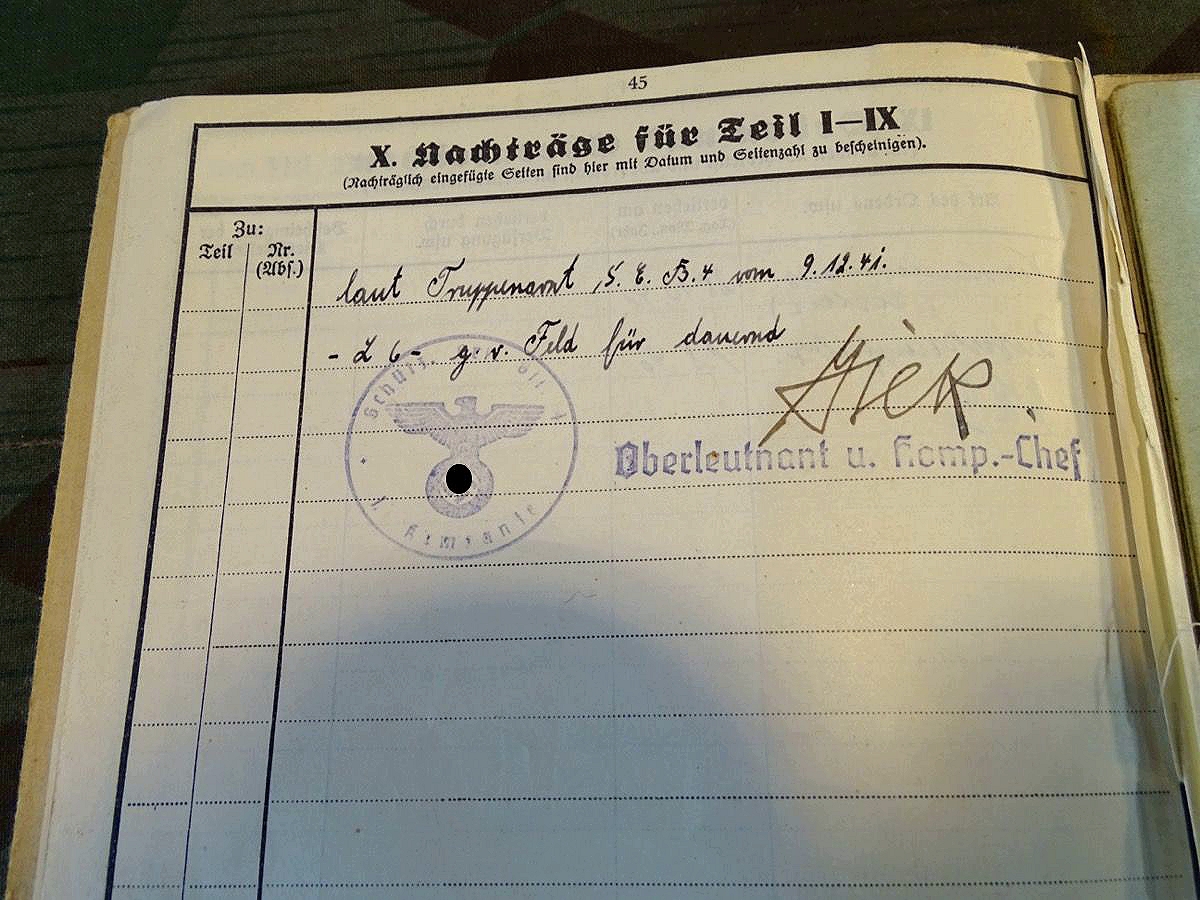 45
X. Nachträge für Teil I—IX
(Nachträglich eingefügte Seiten sind hier mit Datum und Seitenzahl zu bescheinigen).
Zu:
Teil Nr.
(Abs.)
laut Truppenarzt, S. E. B. 4 vom 9.12.41.
- L 6 - g. v. Feld für dauernd
Oberleutnant u. Komp.-Chef